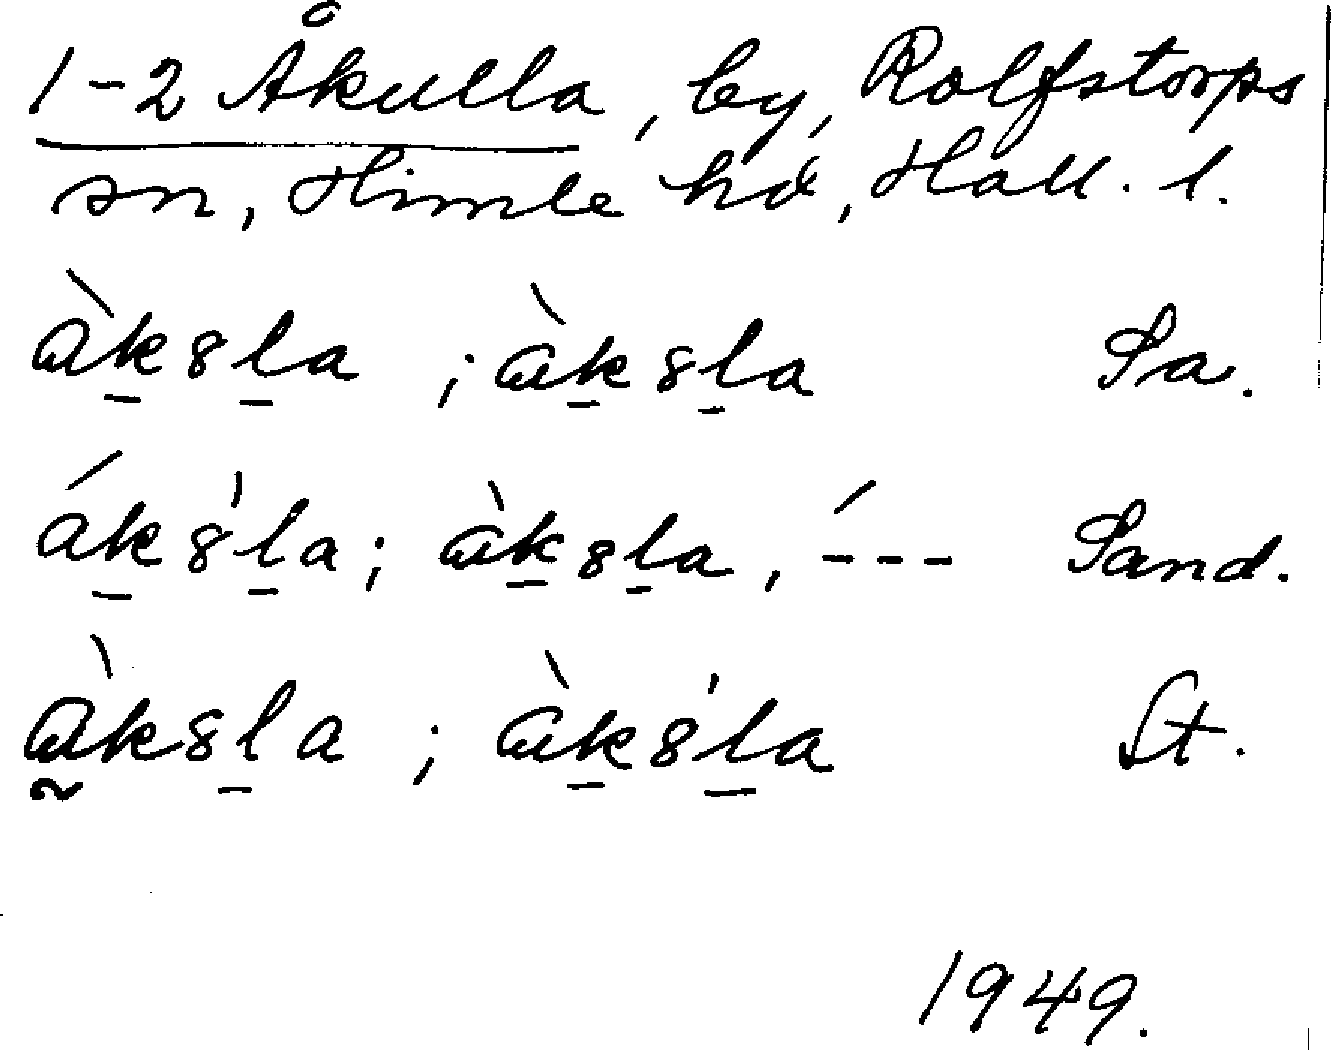 1-2 Åkulla, by, Rolfstorps
sn, Himle hd, Hall. l.
àksla ; àksla Sa.
áks'la; àksla, ´--- Sand.
àksla ; àks'la St.
1949.